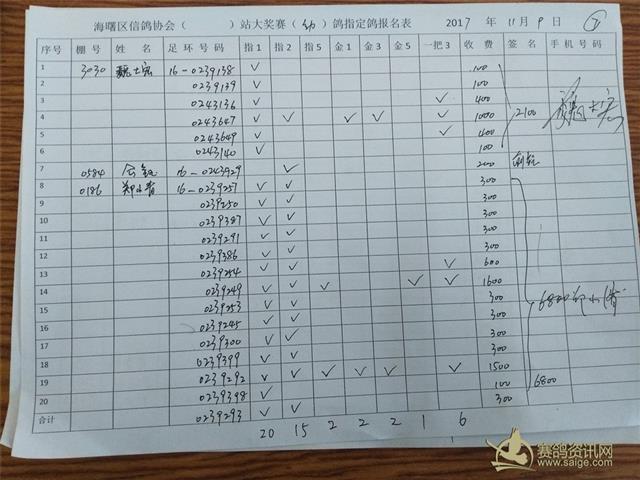 海曙区信鸽协会（ ）站大奖赛（幼）鸽指定鸽报名表 2017年11月9日
序号 棚号 姓名 足环号码 指1 指2 指5 金1 金3 金5 一把3 收费 签名 手机号码
1 3030 魏士宏 16-0239138 ✓ 100
2 0239139 ✓ 100
3 0243136 ✓ ✓ 400
4 0243647 ✓ ✓ ✓ ✓ ✓ 1000 2100
5 0243649 ✓ ✓ 400
6 0243140 ✓ 100
7 0584 16-0243929 ✓ 200
8 0186 郑小青 16-0239257 ✓ ✓ 300
9 0239250 ✓ ✓ 300
10 0239387 ✓ ✓ 300
11 0239291 ✓ ✓ 300
12 0239386 ✓ ✓ 300
13 0239254 ✓ ✓ ✓ 600
14 0239249 ✓ ✓ ✓ ✓ ✓ 1600
15 0239253 ✓ ✓ 300 6800
16 0239245 ✓ ✓ 300
17 0239300 ✓ ✓ 300
18 0239399 ✓ ✓ 300
19 0239292 ✓ ✓ ✓ ✓ ✓ ✓ 1500
20 0239398 ✓ 100 6800
合计 0239293 ✓ ✓ 300
20 15 2 2 2 1 6
赛鸽资讯网
www.saige.com